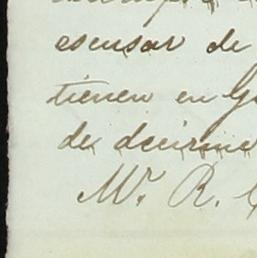 escusar de
tienen en
de decirme
Mr. R.